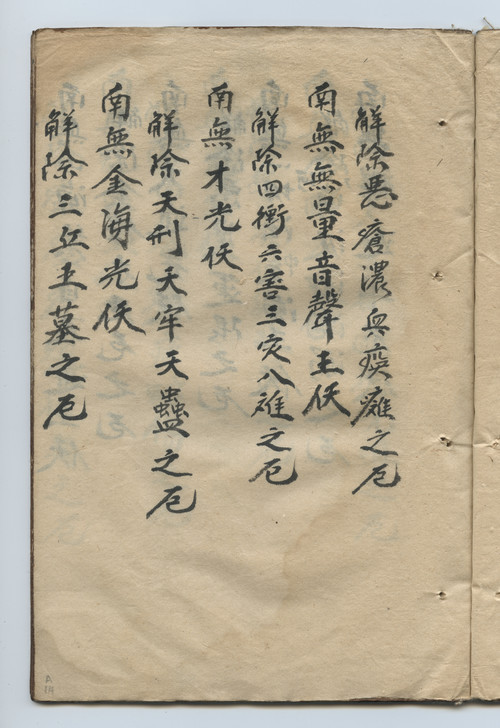 解除惡瘡濃血痰癱之厄
南無無量音聲王佚
解除四衝六害三灾八难之厄
南無才光佚
解除天刑天牢天蠱之厄
南無金海光佚
解除三丘五墓之厄